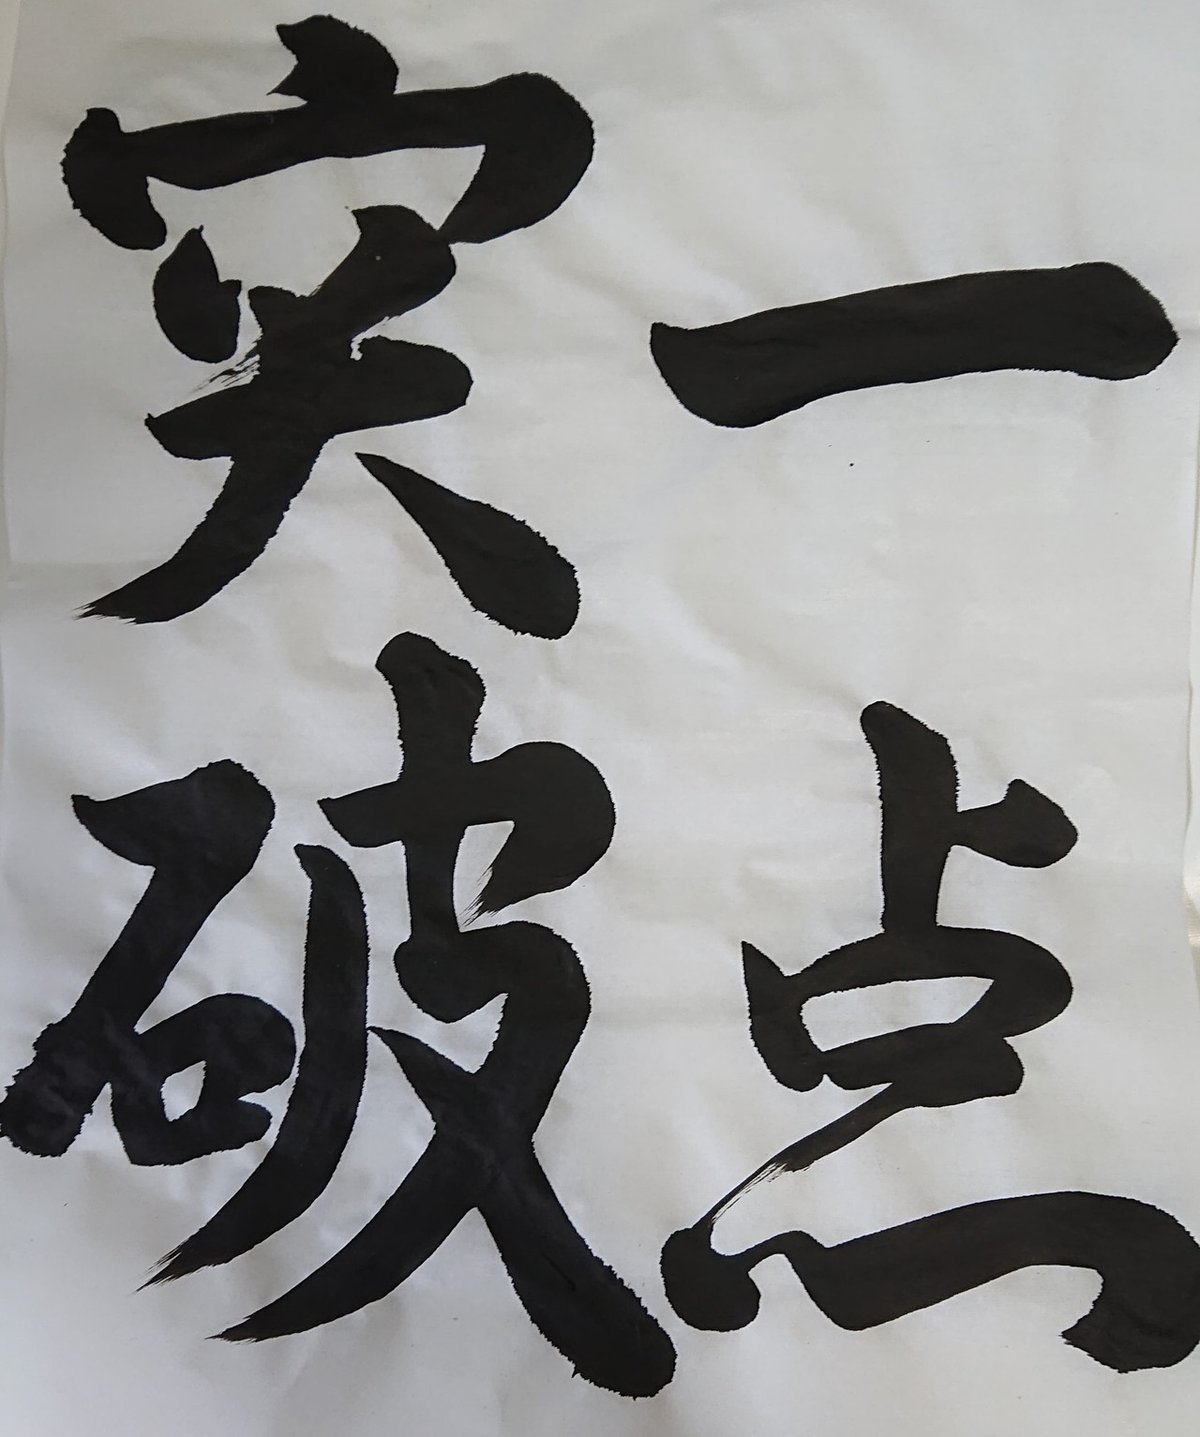 一点
突破